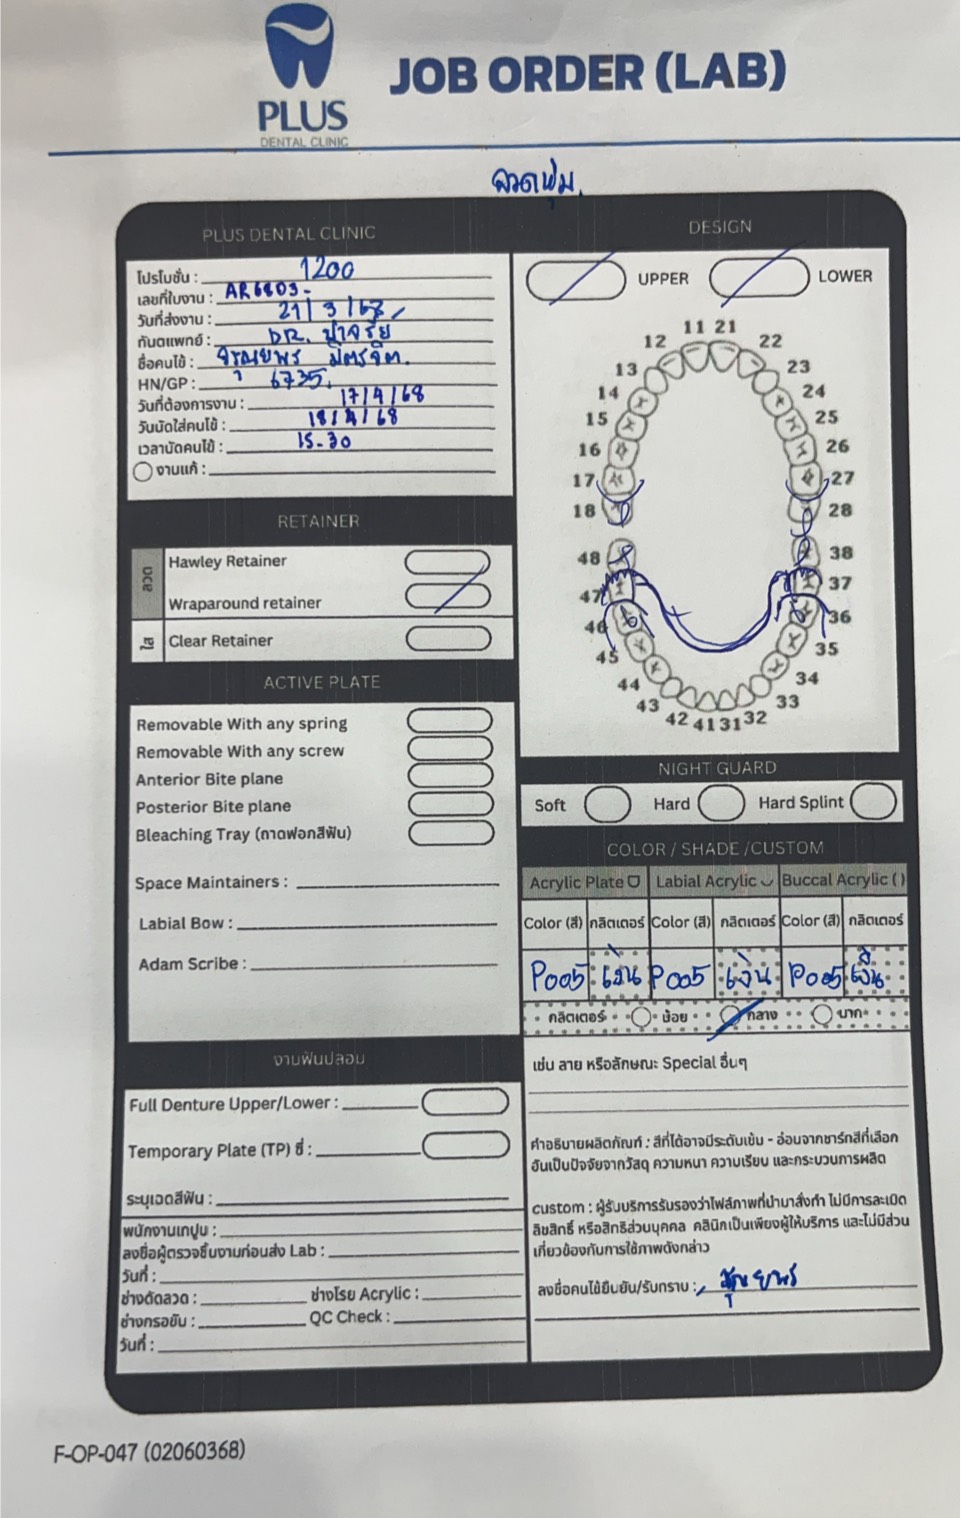 PLUS
DENTAL CLINIC
JOB ORDER (LAB)
ลวดหุ้ม
PLUS DENTAL CLINIC
โปรโมชั่น : 1200
เลขที่ใบงาน : AR6803-
วันที่ส่งงาน : 21/3/68
ทันตแพทย์ : DR. ปาจรีย์
ชื่อคนไข้ :
HN/GP : 6735
วันที่ต้องการงาน : 17/4/68
วันนัดใส่คนไข้ : 18/4/68
เวลานัดคนไข้ : 15.30
งานแก้ :
RETAINER
ลวด
Hawley Retainer
Wraparound retainer
ใส
Clear Retainer
ACTIVE PLATE
Removable With any spring
Removable With any screw
Anterior Bite plane
Posterior Bite plane
Bleaching Tray (ถาดฟอกสีฟัน)
Space Maintainers :
Labial Bow :
Adam Scribe :
งานฟันปลอม
Full Denture Upper/Lower :
Temporary Plate (TP) ซี่ :
ระบุเฉดสีฟัน :
พนักงานเทปูน :
ลงชื่อผู้ตรวจชิ้นงานก่อนส่ง Lab :
วันที่ :
ช่างดัดลวด : ช่างโรย Acrylic :
ช่างกรอขัด : QC Check :
วันที่ :
DESIGN
UPPER LOWER
11 21
12 22
13 23
14 24
15 25
16 26
17 27
18 28
48 38
47 37
46 36
45 35
44 34
43 33
42 41 31 32
NIGHT GUARD
Soft Hard Hard Splint
COLOR / SHADE /CUSTOM
Acrylic Plate Labial Acrylic Buccal Acrylic ( )
Color (สี) กลิตเตอร์ Color (สี) กลิตเตอร์ Color (สี) กลิตเตอร์
P005 เงิน P005 เงิน P005 เงิน
กลิตเตอร์ น้อย กลาง มาก
เช่น ลาย หรือลักษณะ Special อื่นๆ
คำอธิบายผลิตภัณฑ์ : สีที่ได้อาจมีระดับเข้ม - อ่อนจากชาร์ทสีที่เลือก
อันเป็นปัจจัยจากวัสดุ ความหนา ความเรียบ และกระบวนการผลิต
custom : ผู้รับบริการรับรองว่าไฟล์ภาพที่นำมาสั่งทำ ไม่มีการละเมิด
ลิขสิทธิ์ หรือสิทธิส่วนบุคคล คลินิกเป็นเพียงผู้ให้บริการ และไม่มีส่วน
เกี่ยวข้องกับการใช้ภาพดังกล่าว
ลงชื่อคนไข้ยืนยัน/รับทราบ :
F-OP-047 (02060368)